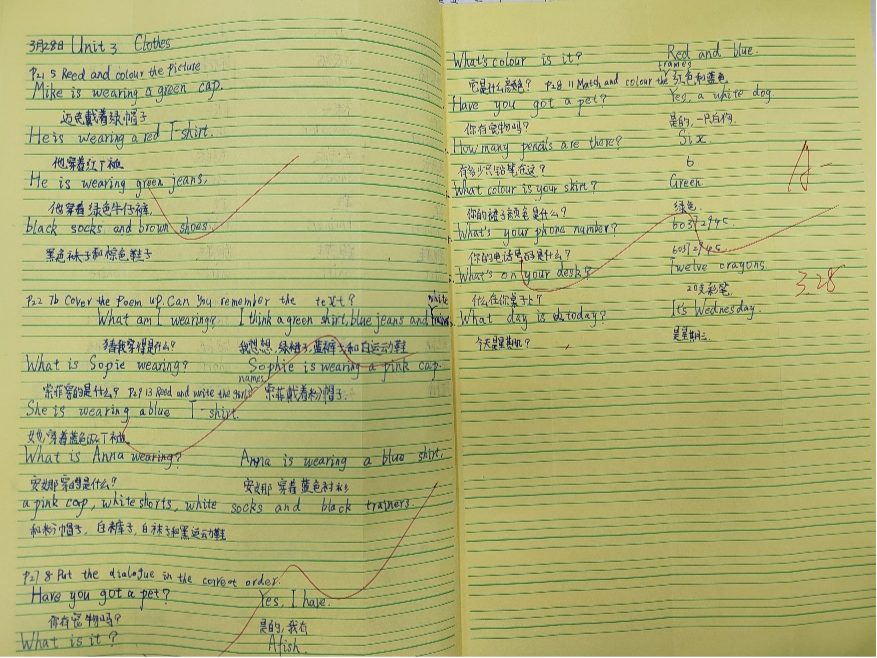 3月28日 Unit 3 Clothes
P21 5 Reed and colour the picture
Mike is wearing a green cap.
迈克戴着绿帽子
He is wearing a red T-shirt.
他穿着红T恤
He is wearing green jeans,
他穿着绿色牛仔裤,
black socks and brown shoes.
黑色袜子和棕色鞋子
P22 7b Cover the Poem up. Can you remember the text?
What am I wearing? I think a green shirt, blue jeans and white trainers.
猜我穿得是什么? 我想想,绿裙子,蓝裤子和白运动鞋
What is Sopie wearing? Sophie is wearing a pink cap.
索菲穿的是什么? P29 13 Reed and write the girls' names 索菲戴着粉帽子.
She is wearing a blue T-shirt.
她穿着蓝色的T恤
What is Anna wearing? Anna is wearing a blue shirt,
安娜穿的是什么? 安娜穿着蓝色衬衫
a pink cap, white shorts, white socks and black trainers.
和粉帽子, 白裤子, 白袜子和黑运动鞋
P27 8 Put the dialogue in the correct order.
Have you got a pet? Yes, I have.
你有宠物吗? 是的,我有
What is it? A fish.
What's colour is it? Red and blue.
它是什么颜色? P28 11 Match and colour the frames 红色和蓝色
Have you got a pet? Yes, a white dog.
你有宠物吗? 是的,一只白狗
How many pencils are there? Six
有多少只铅笔在这? 6
What colour is your skirt? Green.
你的裙子颜色是什么? 绿色
What's your phone number? 60372945.
你的电话号码是什么? 60372945
What's on your desk? Twelve crayons.
什么在你桌子上? 20支彩笔
What day is today? It's Wednesday.
今天是星期几? 是星期三.
A-
3.28